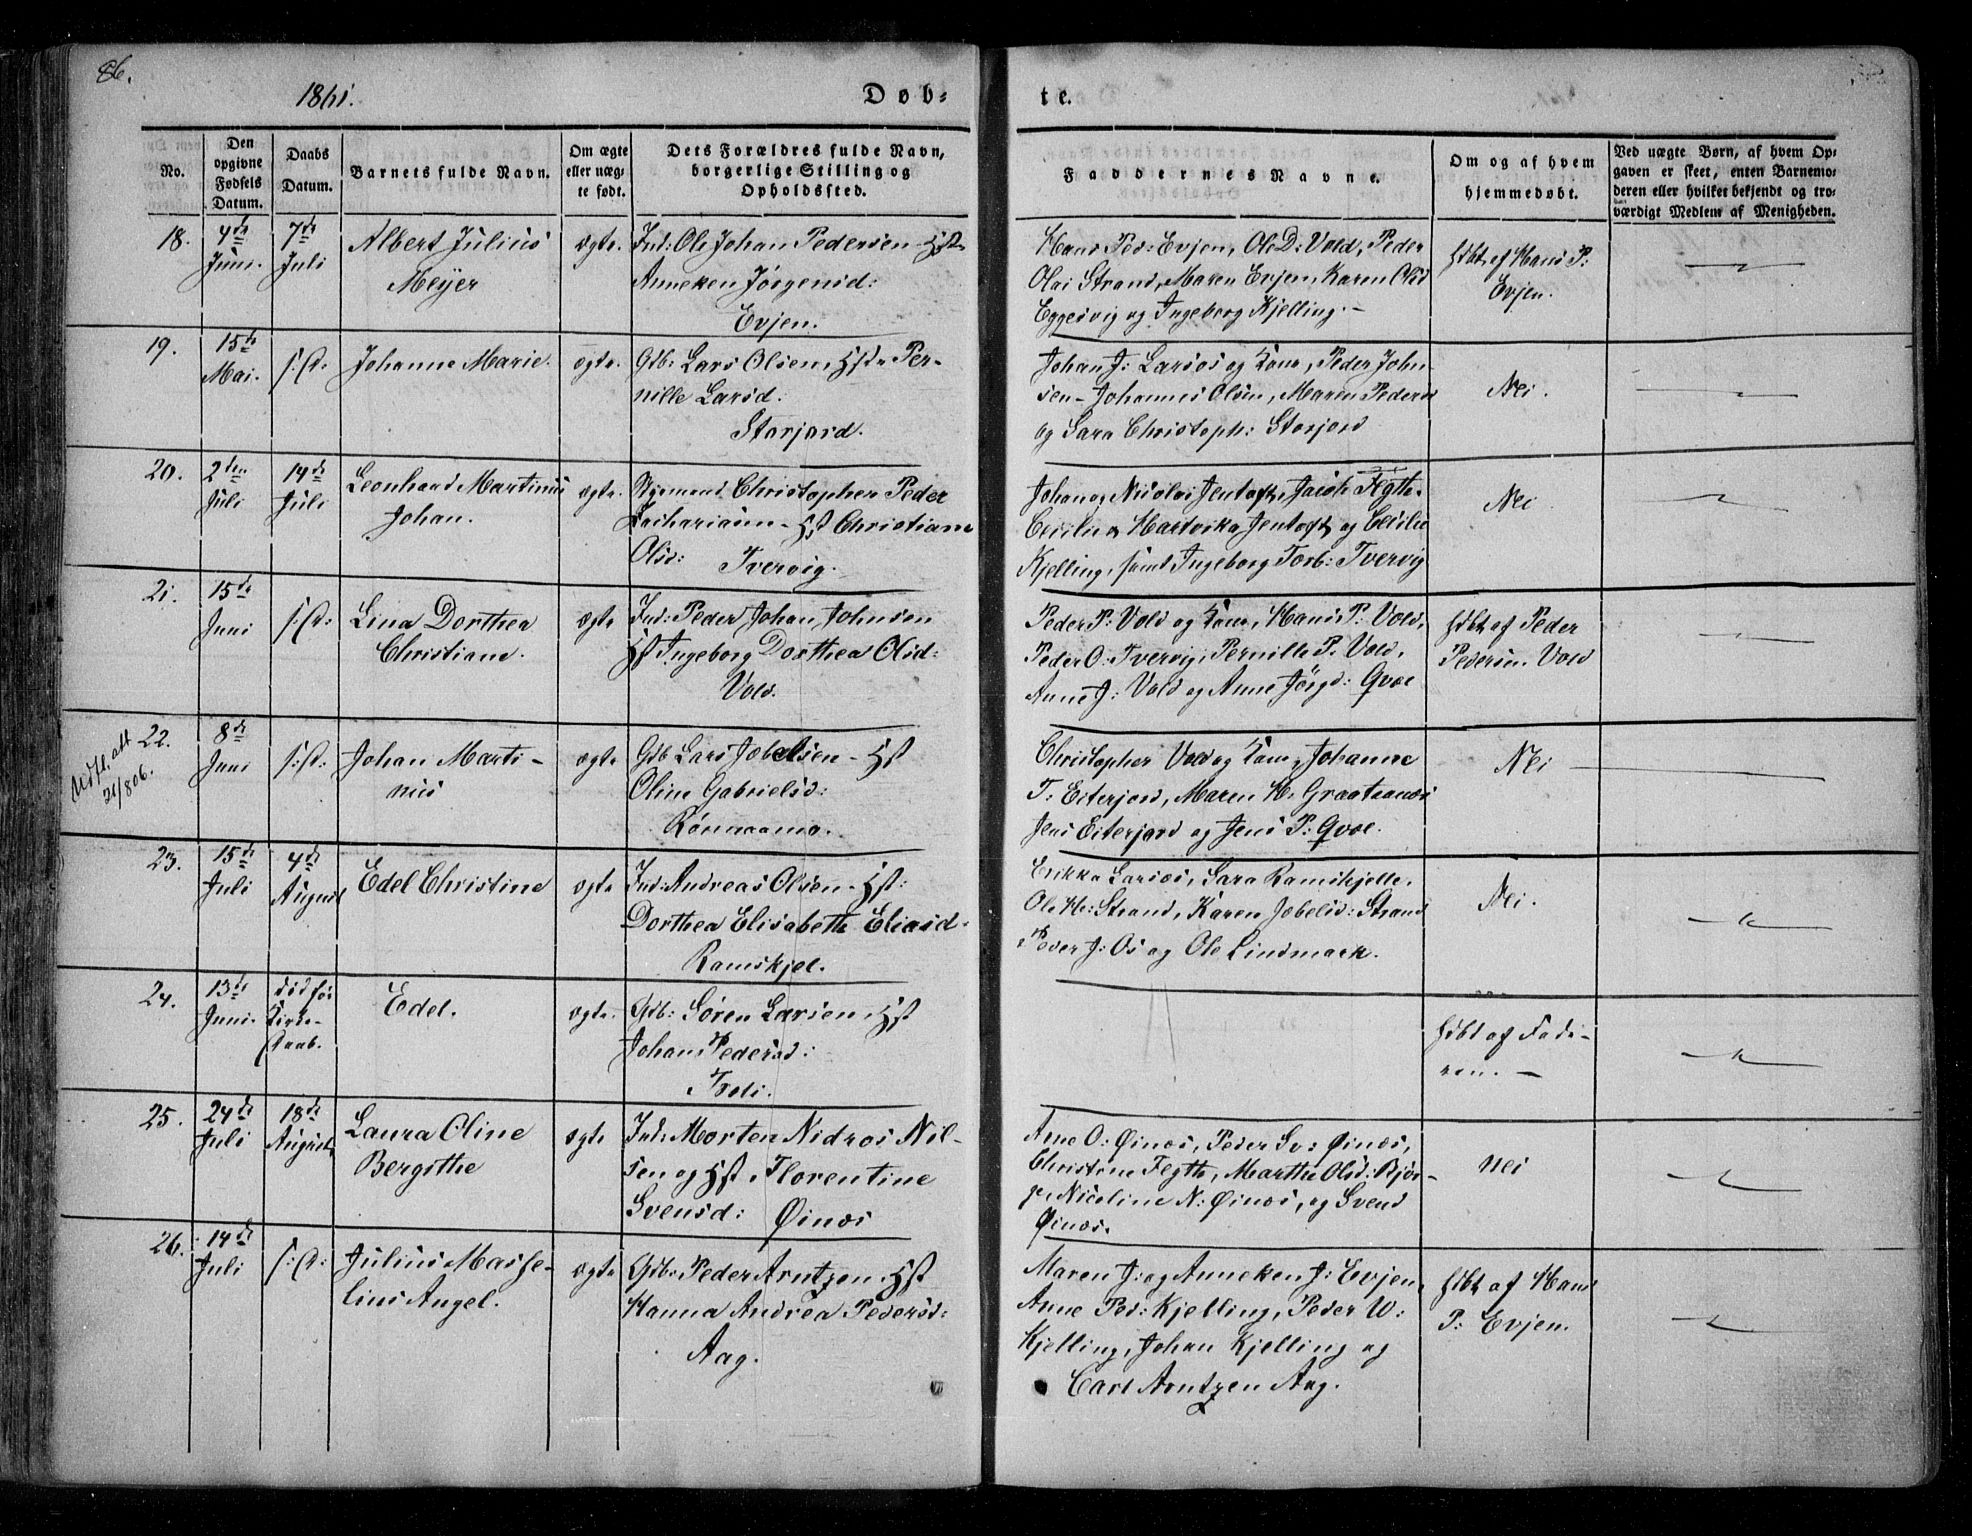 86.
1861.
Døb-
te.
No.
Den opgivne Fødsels Datum.
Daabs Datum.
Barnets fulde Navn.
Om ægte eller uægte født.
Dets Forældres fulde Navn, borgerlige Stilling og Opholdssted.
Faddernes Navne.
Om og af hvem hjemmedøbt.
Ved uægte Børn, af hvem Opgaven er skeet, enten Barnemoderen eller hvilket bekjendt og troværdigt Medlem af Menigheden.
18. 4de Juni. 7de Juli
Albert Julius
Meyer
ægte.
Ind: Ole Johan Pedersen - Hst
Anneken Jørgensd:
Evjen.
Hans Ped: Evjen, Ole D: Vold, Peder
Olai Strand, Maren Evjen, Karen Olsd
Eggesvig og Ingeborg Kjelling. -
hdbt af Hans P:
Evjen.
19. 15de Mai. s: D.
Johanne Marie.
ægte.
Gdb: Lars Olsen, Hst Per-
nille Larsd.
Storjord.
Johan J: Larsos og Kone, Peder John
sen - Johannes Olsen, Maren Peders
og Sara Christoph: Storjord
Nei.
20. 2den Juli 14de Juli
Leonhard Martinus
Johan.
ægte.
Christopher Peder
Zachariasen - Hst Christiane
Olsd: Tvervig.
Johan og Nicolai Jentoft, Jacob Flygth.
Cecilie & Hartvika Jentoft og Cecilie
Kjelling, samt Ingeborg Torb: Tvervig
Nei
21. 15de Juni s: D:
Lina Dorthea
Christiane.
ægte
Ind: Peder Johan Johnsen
Hst Ingeborg Dorthea Olsd:
Vold.
Peder P: Vold og Kone, Hans P: Vold,
Peder O: Tvervig, Pernille P. Vold,
Anne J: Vold og Anne Jørgd: Qvæe
hdbt af Peder
Pedersen Vold
Udfl. att
21/806.
22. 8de Juni s: D:
Johan Marti-
nus
ægte
Gdb Lars Jobelsen - Hst
Oline Gabrielsd:
Christopher Vold og Kone, Johanne
T: Eiterjord, Maren H.
Jens Eiterjord og Jens P: Qvæe.
Nei
23. 15de Juli 4de August
Edel Christine
ægte
Ind: Andreas Olsen - Hst:
Dorthea Elisabeth Eliasd-
Ramskjel.
Erikka Larsos, Sara Ramskjelle,
Ole H: Strand, Karen Jobelsd: Strand
Peder J: Os og Ole Lindmark.
Nei.
24. 13de Juni. død før
Kirke-
daab.
Edel.
ægte.
Gdb: Søren Larsen, Hst
Johan Pedersd:
hdbt af Fade-
ren. -
25. 24de Juli 18de August
Laura Oline
Bergithe
ægte
Ind: Morten Nidros Nil-
sen og Hst Florentine
Svensd: Øinæs
Arne O: Øinæs, Peder Sv: Øinæs,
Christine Flygth, Marthe Olsd: Bjør-
Nicoline N: Øinæs, og Svend
Øinæs.
Nei
26. 14de Juli s: D:
Julius Masse-
lius Angel.
ægte
Gdb: Peder Arntzen, Hst
Hanna Andrea Pedersd:
Aag.
Maren J: og Anneken J: Evjen,
Anne Ped: Kjelling, Peder W:
Kjelling, Johan Kjelling og
Carl Arntzen Aag.
hdbt af Hans
P: Evjen.